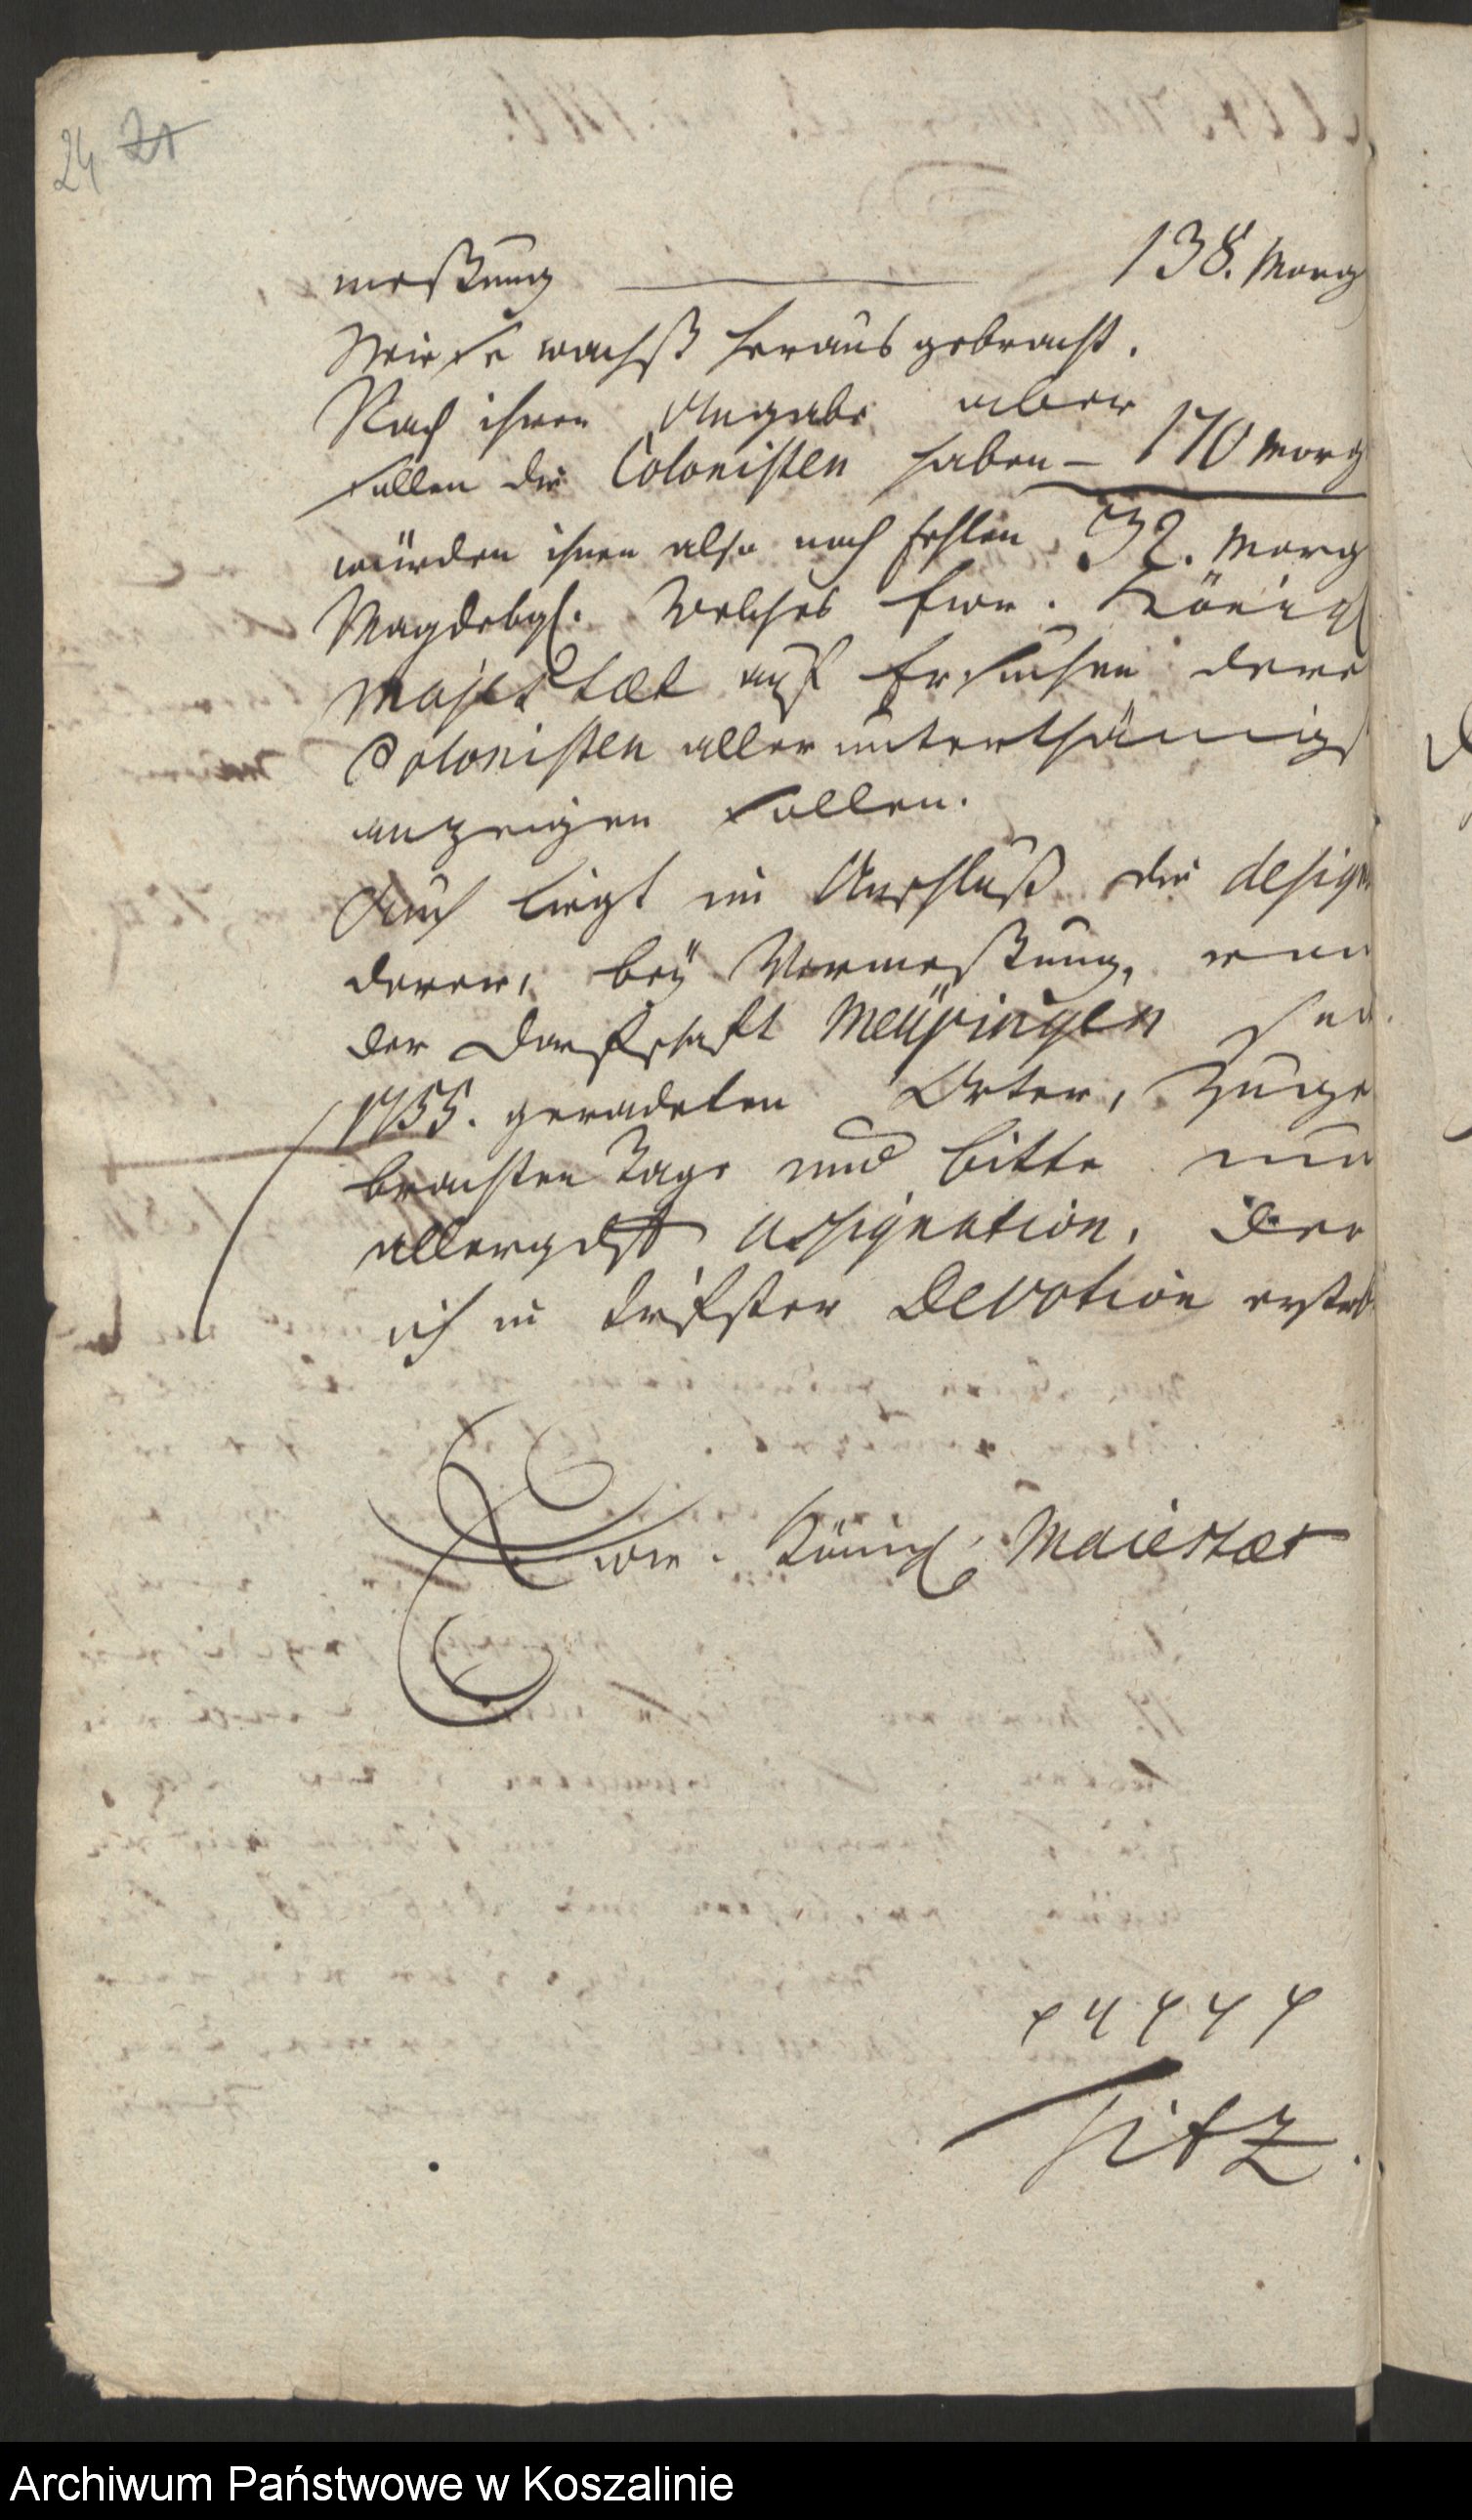 24 21
meßung — 138. Morg
Wiese wachß heraus gebracht.
Nach ihren Angabe aber
sollen die Colonisten haben – 170 Morg
würden ihnen also noch fehlen 32. Morg
Magdebgs. Welches Ewr. Königl
Majestæt auf Ersuchen derer
Colonisten aller unterthänigst
anzeigen sollen.
Auch liegt im Anschluß die design
derer, bey Vermeßung,
der Dorfschaft
1755. Örter, zuge
brachten Tage und bitte um
allergdst assignation. Der
ich in tiefster Devotion ersterbe
Ewr. Königl. Maiestæt
Titz.
Archiwum Państwowe w Koszalinie